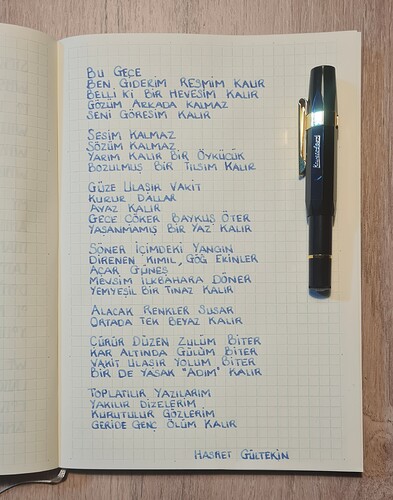 BU GECE
BEN GİDERİM RESMİM KALIR
BELLİ Kİ BİR HEVESİM KALIR
GÖZÜM ARKADA KALMAZ
SENİ GÖRESİM KALIR
SESİM KALMAZ
SÖZÜM KALMAZ
YARIM KALIR BİR ÖYKÜCÜK
BOZULMUŞ BİR TILSIM KALIR
GÜZE ULAŞIR VAKİT
KURUR DALLAR
AYAZ KALIR
GECE ÇÖKER BAYKUŞ ÖTER
YAŞANMAMIŞ BİR YAZ KALIR
SÖNER İÇİMDEKİ YANGIN
DİRENEN KIMIL, GÖĞ EKİNLER
AÇAR GÜNEŞ
MEVSİM İLKBAHARA DÖNER
YEMYEŞİL BİR TINAZ KALIR
ALACAK RENKLER SUSAR
ORTADA TEK BEYAZ KALIR
ÇÜRÜR DÜZEN ZULÜM BİTER
KAR ALTINDA GÜLÜM BİTER
VAKİT ULAŞIR YOLUM BİTER
BİR DE YASAK "ADIM" KALIR
TOPLATILIR YAZILARIM
YAKILIR DİZELERİM
KURUTULUR GÖZLERİM
GERİDE GENÇ ÖLÜM KALIR
HASRET GÜLTEKİN
Kaweco